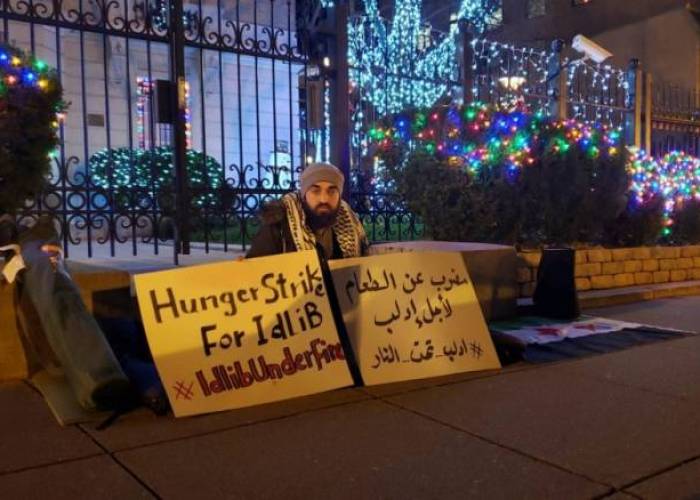 Hunger Strike
For IdLiB
#IdlibUnderFire
مضرب عن الطعام
لأجل إدلب
#ادلب_تحت_النار